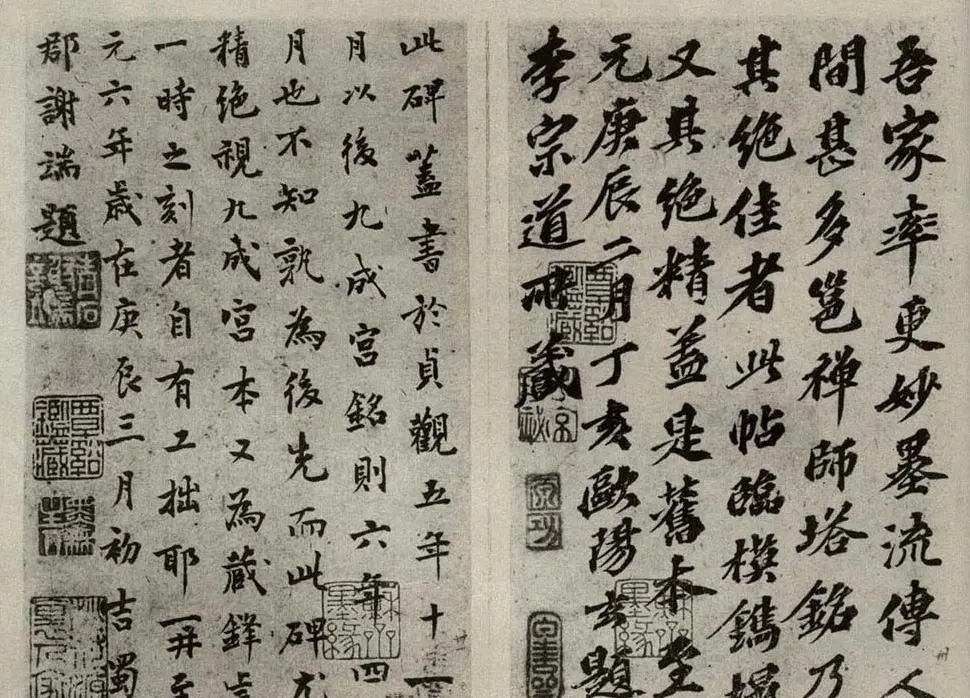 吾家率更妙墨流傳人
間甚多邕禪師塔銘乃
其絕佳者此帖臨模鐫搨
又其絕精蓋是舊本至
元庚辰二月丁亥歐陽玄題
李宗道所藏
此碑蓋書於貞觀五年十一
月以後九成宮銘則六年四
月也不知孰為後先而此碑尤
精絕視九成宮本又為藏鋒豈
一時之刻者自有工拙耶至
元六年歲在庚辰三月初吉蜀
郡謝端題